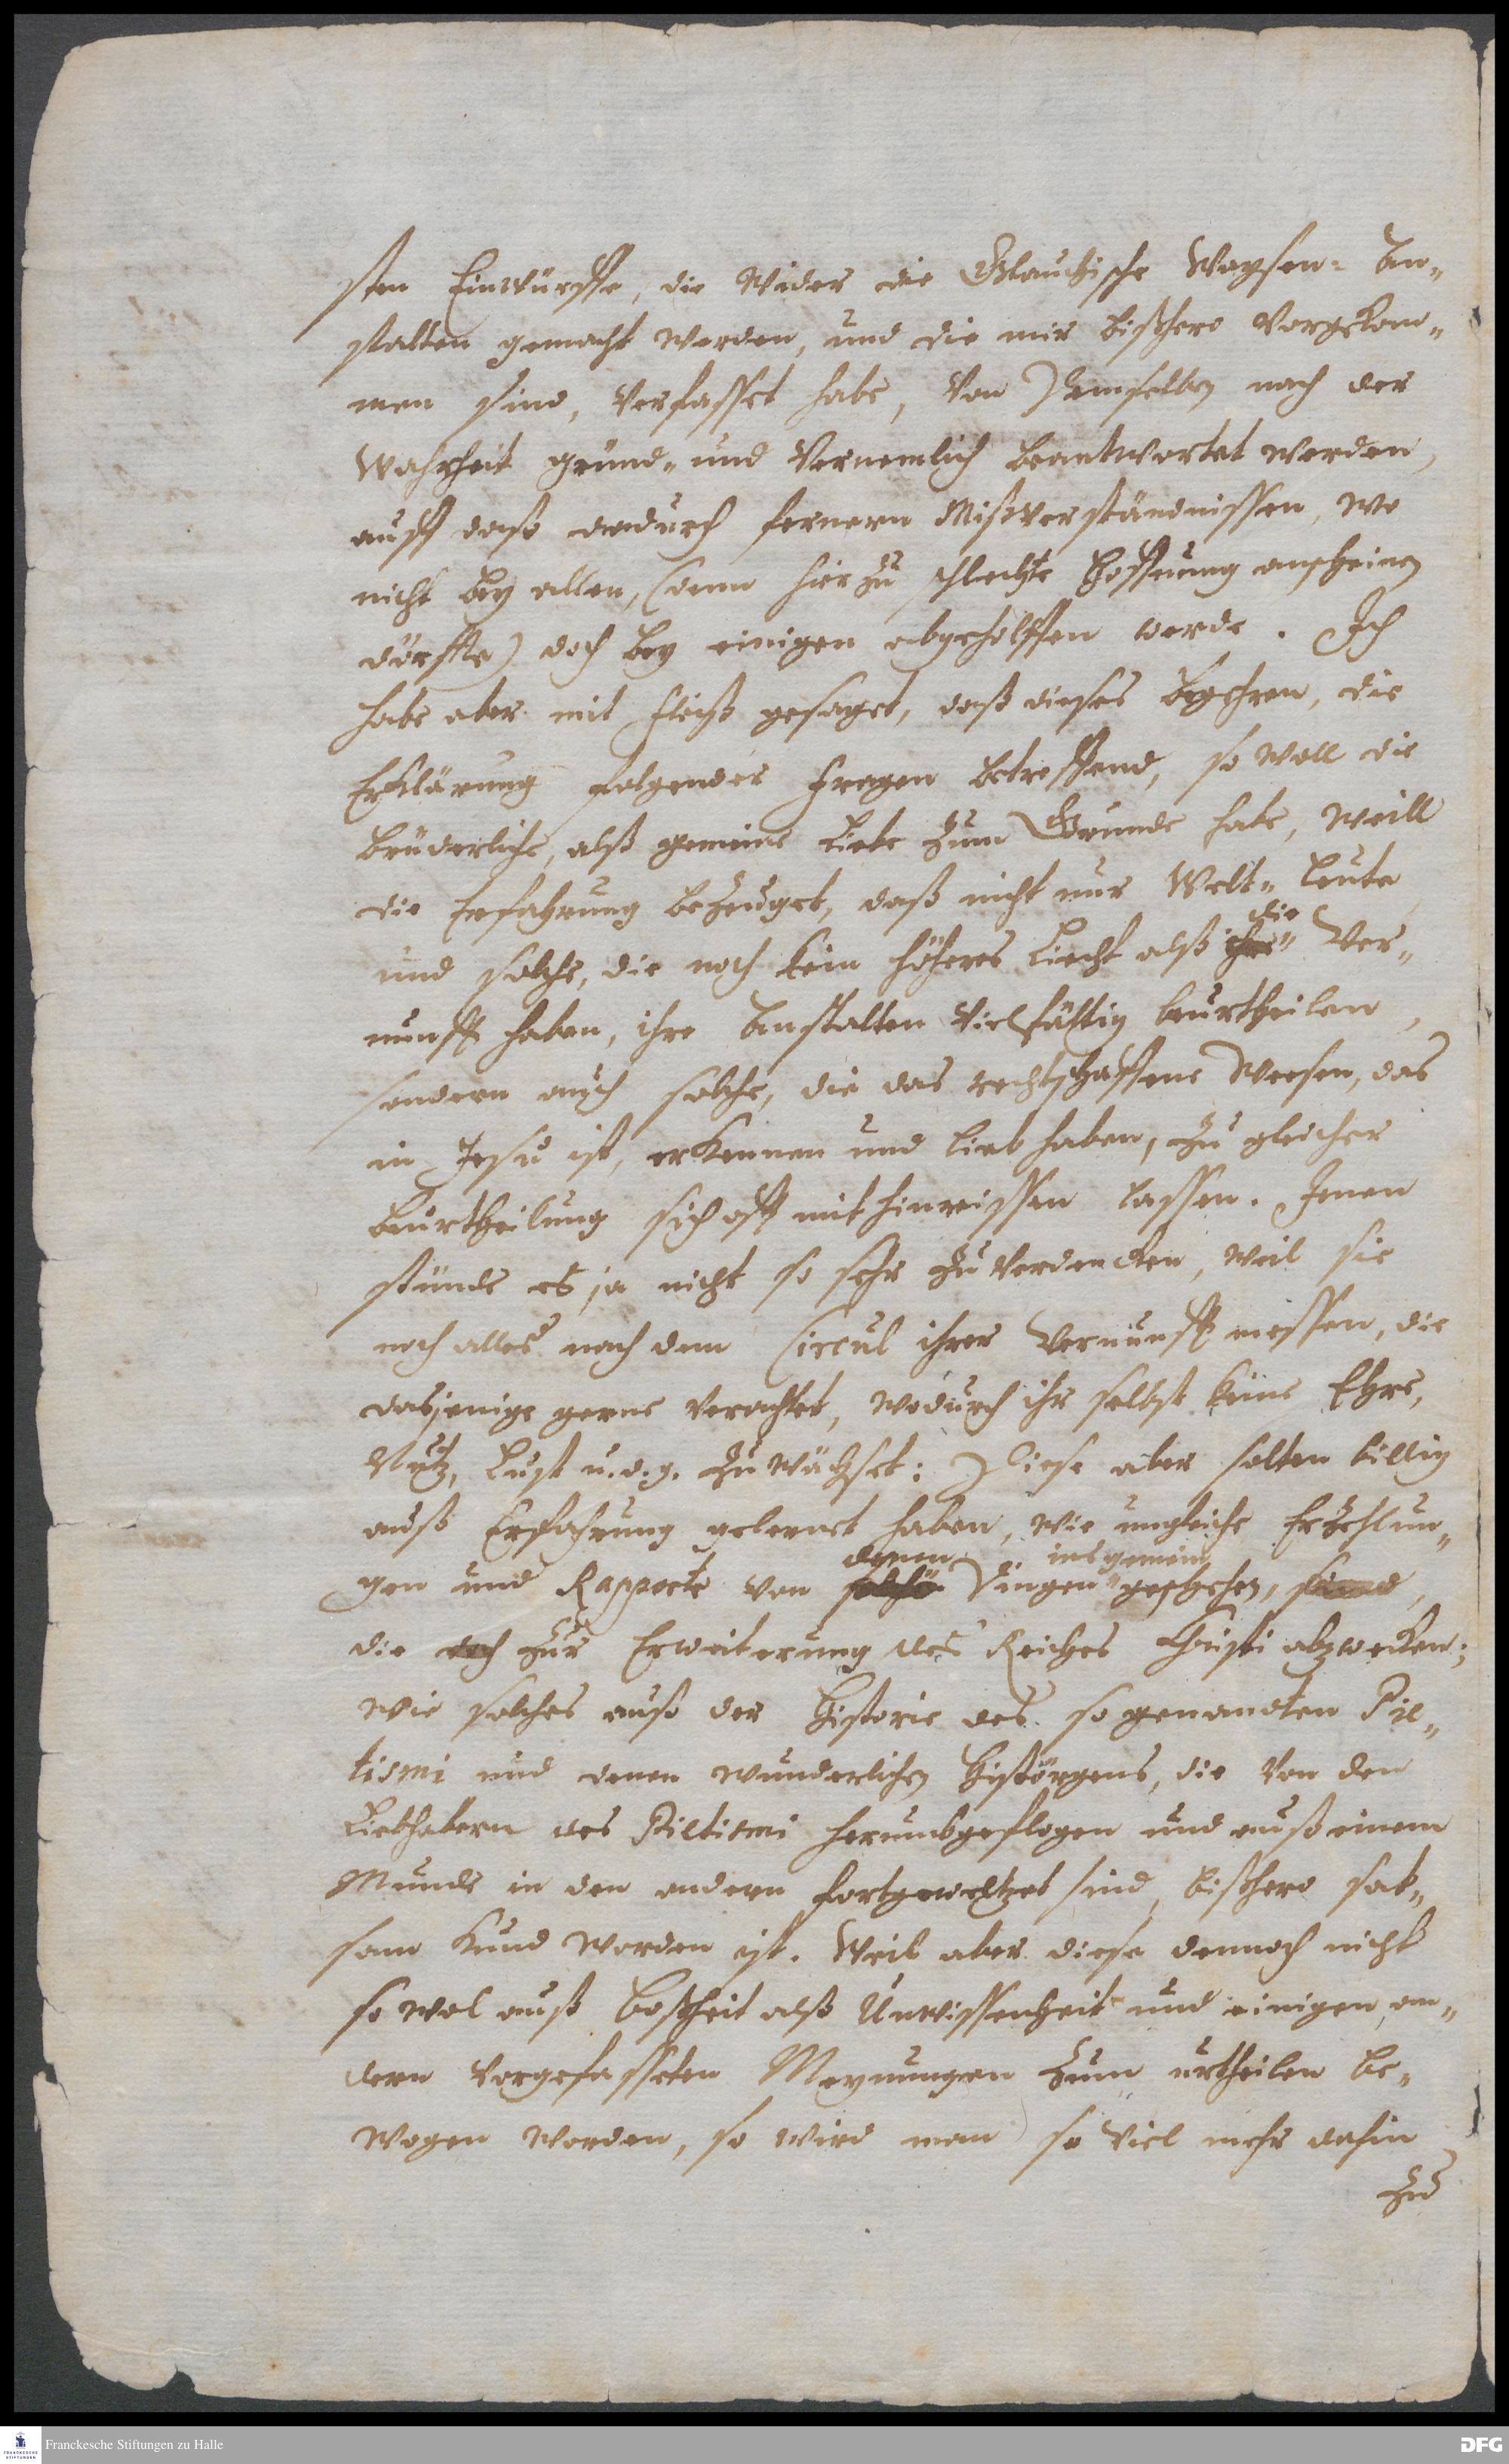 sten Einwürffe, die wider die Glauchische Waysen- An-
stalten gemacht werden, und die mir bißhero vorgekom-
men sind, verfasset habe, von Demselben nach der
Wahrheit gründ- und vernemlich beantwortet werden,
auff daß dadurch fernern Mißverständnissen, wo
nicht bey allen, (denn hierzu schlechte Hoffnung anscheinen
dörffte) doch bey einigen abgeholffen werde. Ich
habe aber mit Fleiß gesaget, daß dieses Begehren, die
Erklärung folgender Fragen betreffend, so woll die
brüderliche, alß gemeine Liebe zum Grunde habe, weill
die Erfahrung bezeuget, daß nicht nur Welt- Leute
und solche, die noch kein höheres Liecht alß ihre die Ver-
nunfft haben, ihre Anstalten vielfältig beurtheilen,
sondern auch solche, die das rechtschaffene Weesen, das
in Jesu ist, erkennen und lieb haben, zu gleicher
Beurtheilung sich offt mit hinreissen lassen. Jenen
stünde es ja nicht so sehr zu verdencken, weil sie
noch alles nach dem Circul ihrer Vernunfft messen, die
dasjenige gerne verachtet, wodurch ihr selbst keine Ehre,
Nutz, Lust u.d.g. zuwächset: Diese aber solten billig
auß Erfahrung gelernet haben, wie ungleiche Erzehlun-
gen und Rapporte von solchen denen Dingen insgemein geschehen, sind,
die doch zur Erweiterung des Reiches Christi abzwecken;
wie solches auß der Historie des so genandten Pie-
tismi und denen wunderlichen Histörgens, die von den
Liebhabern des Pietismi herumbgeflogen und auß einem
Munde in den andern fortgeweltzet sind, bißhero sat-
sam kund worden ist. Weil aber diese dennoch nicht
so wol auß Boßheit alß Unwissenheit und einigen an-
dern vorgefasseten Meynungen zum urtheilen be-
wogen worden, so wird man so viel mehr dahin
zu
Franckesche Stiftungen zu Halle
DFG